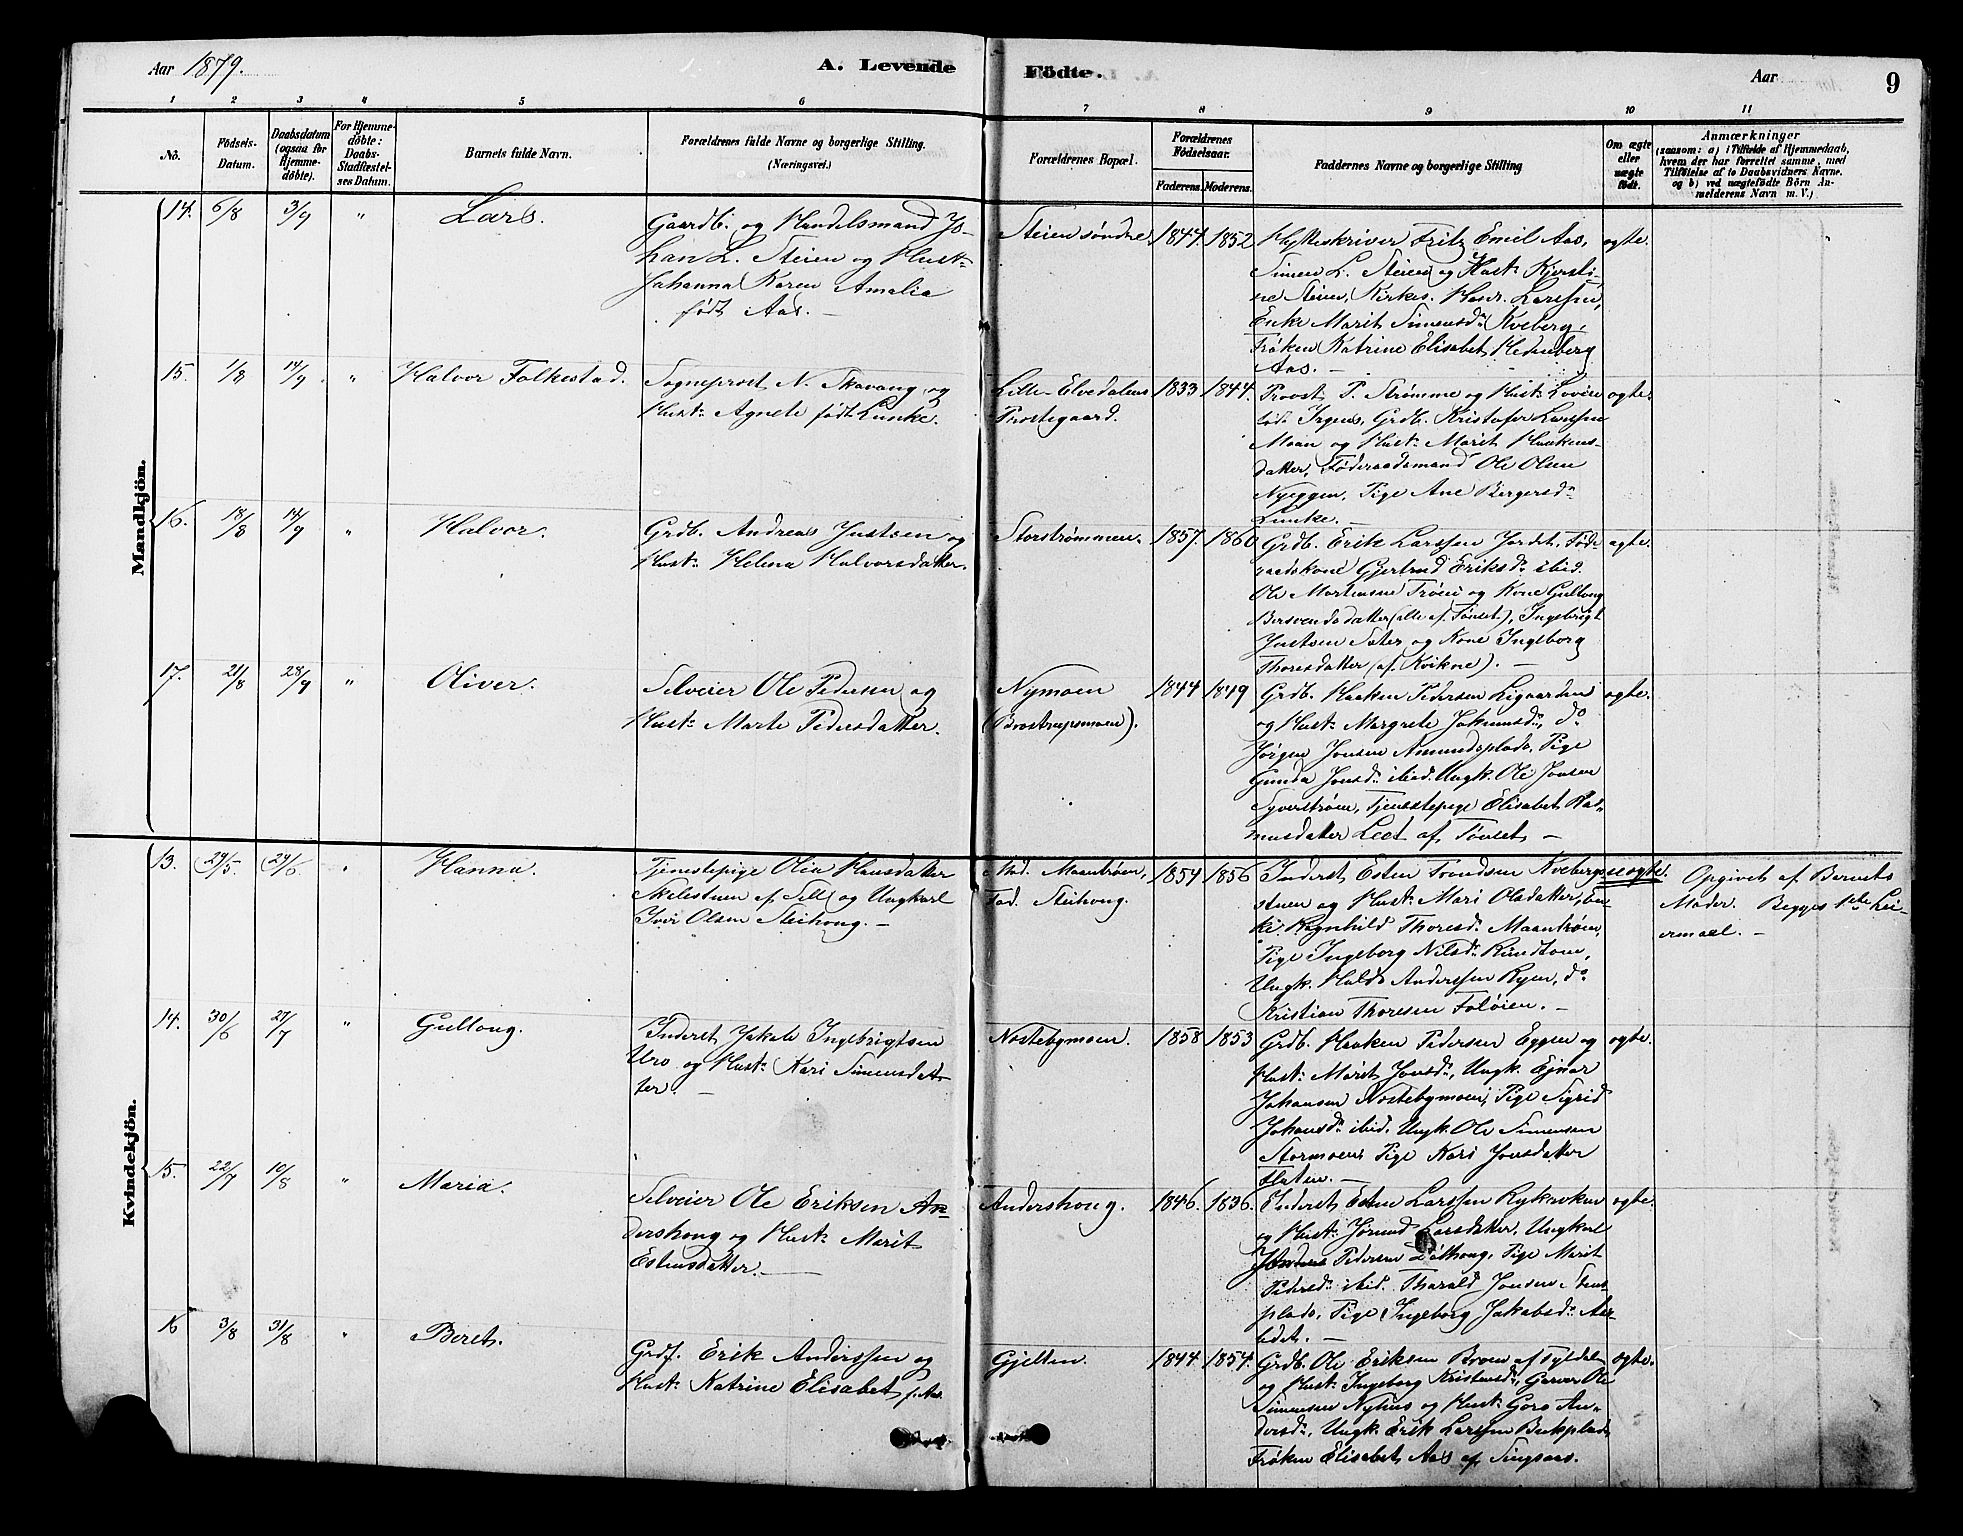 Aar 1879.
A. Levende Fødte.
Aar
9
1 2 3 4 5 6 7 8 9 10 11
No.
Fødsels-
Datum.
Daabsdatum
(ogsaa for
Hjemme-
døbte).
For Hjemme-
døbte:
Daabs-
Stadfæstel-
ses Datum.
Barnets fulde Navn.
Forældrenes fulde Navne og borgerlige Stilling.
(Næringsvei.)
Forældrenes Bopæl.
Forældrenes
Fødselsaar.
Faderens. Moderens.
Faddernes Navne og borgerlige Stilling
Om ægte
eller
uægte
født.
Anmærkninger
(saasom: a) i Tilfælde af Hjemmedaab,
hvem der har forrettet samme, med
Tilføielse af to Daabsvidners Navne.
og b) ved uægtefødte Börn An-
melderens Navn m. V.)
Mandkjön.
14. 6/8 3/9 " Lars.
Gaardb. og Handelsmand Jo-
han L. Steien og Hust:
Johanna Karen Amalia
født Aas. -
Steien søndre 1844 1852
Hytteskriver Fritz Emil Aas,
Simen L. Steien og Hust: Kjersti-
ne Steien, Kirkes. Hans Larssen,
Enke Marit Simensd: Kveberg,
Frøken Katrine Elisabet Hedenberg
Aas. -
ægte.
15. 1/8 14/9 " Halvor Folkestad.
Sogneprest N. Skavang og
Hust: Agnete født Lunke.
Lille-Elvedalens
Prestegaard.
1833 1844.
Provst P. Strømme og Hust: Lovise
født Irgens, Grdb. Kristofer Larssen
Moan og Hust: Marit Haakens-
datter, Føderaadsmand Ole Olsen
Nyeggen, Pige Ane Bergersd:
Lunke. -
ægte.
16. 18/8 14/9 " Halvor.
Grdb. Andreas Justsen og
Hust: Helena Halvorsdatter.
Storstrømmen. 1857. 1860
Grdb. Erik Larssen Jordet, Føde-
raadskone Gjertrud Eriksd: ibid.
Ole Mortensen Trøen og Kone Gullong
Bersvendsdatter (alle af Tønset), Ingebrigt
Justsen Sæter og Kone Ingeborg
Thoresdatter (af Kvikne). -
ægte.
17. 21/8 28/9 " Oliver.
Selveier Ole Pedersen og
Hust: Marte Pedersdatter.
Nymoen
(Brostrupsmoen).
1844 1849
Grdb. Haaken Pedersen Ligaarden
og Hust: Margrete Jokumsd:, do
Jørgen Jonsen Amundsplads, Pige
Gunda Jonsd: ibid. Ungk. Ole Jonsen
Syverstrøen, Tjenestepige Elisabet Ras-
musdatter Leet af Tønset. -
ægte.
Kvindekjön.
13. 29/5 29/6 " Hanna.
Tjenestepige Olia Hansdatter
Skelestuen af Sell og Ungkarl
Iver Olsen Steihong. -
Mod. Maantrøen,
Fad. Steihong.
1854 1856
Inderst Esten Trondsen Kvebergs-
stuen og Hust: Mari Olsdatter, En-
ke Ragnhild Thoresd: Maantrøen,
Pige Ingeborg Nilsd: Rundtom,
Ungk. Halds Anderssen Ryen, do
Kristian Thoresen Toløien. -
uægte.
Opgivet af Barnets
Moder. Begges 1ste Lei-
ermaal. -
14. 30/6 27/7 " Gullong.
Inderst Jakob Ingebrigtsen
Uro og Hust: Kari Simensdat-
ter. -
Nostebymoen. 1858 1853
Grdb. Haaken Pedersen Eggen og
Hust: Marit Jonsd:, Ungk. Ejnar
Johansen Nostebymoen, Pige Sigrid
Johansd: ibid. Ungk. Ole Simensen
Stormoen, Pige Kari Jonsdatter
Flaten. -
ægte.
15. 22/7 10/8 " Maria.
Selveier Ole Eriksen An-
dershong og Hust: Marit
Estensdatter. -
Andershong. 1846. 1836.
Inderst Esten Larssen Rykroken
og Hust: Jørund Larsdatter, Ungkarl
Anders Pedersen Løkhong, Pige Marit
Pedersd: ibid. Tharald Jonsen Stens-
plads, Pige Ingeborg Jakobsd: 
-
ægte.
16 3/8 31/8 " Beret.
Grdf. Erik Anderssen og
Hust: Katrine Elisabet f. Aas.
Gjelten. 1844. 1854.
Grdb. Ole Eriksen Broen af Tyldal
og Hust: Ingeborg Kristensd:, Garver Ole
Simensen Nyhus og Hust: Goro An-
dersd:, Ungk. Erik Larssen Bækplads
Frøken Elisabet Aas af Singsaas.
ægte.